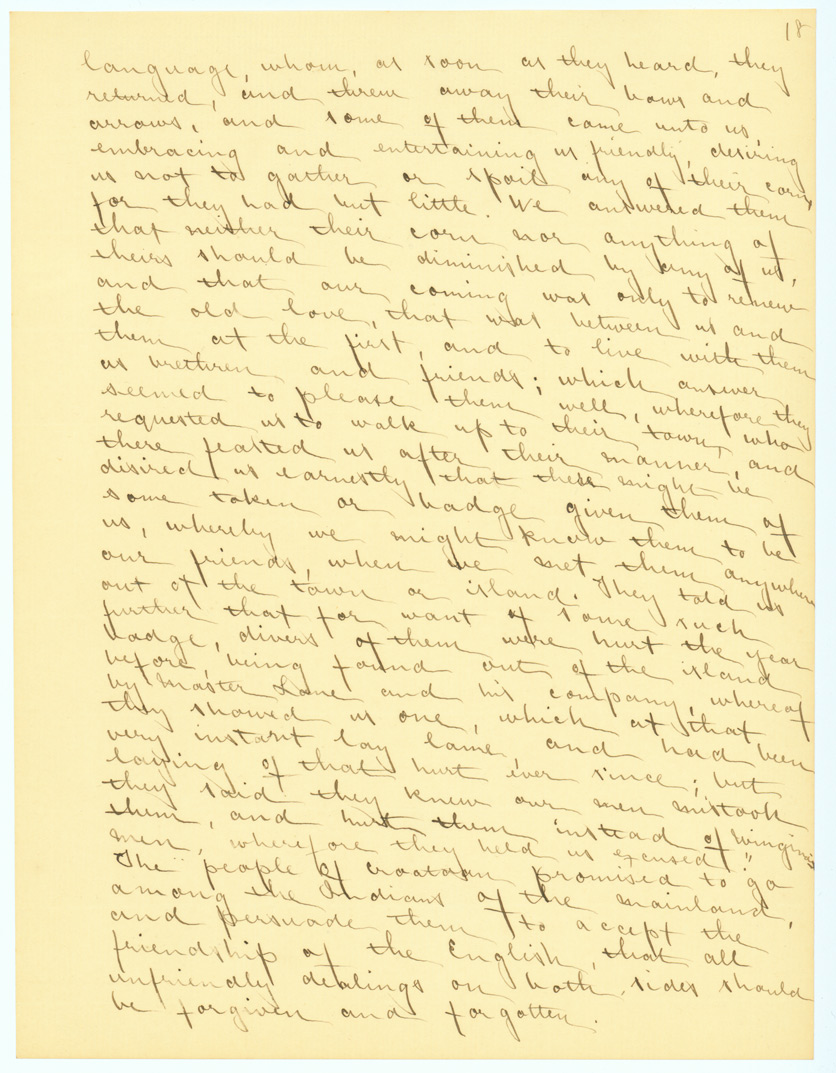 18
language, whom, as soon as they heard, they
returned, and threw away their bows and
arrows, and some of them came unto us,
embracing and entertaining us friendly, desiring
us not to gather or spoil any of their corn,
for they had but little. We answered them
that neither their corn nor anything of
theirs should be diminished by any of us,
and that our coming was only to renew
the old love, that was between us and
them at the first, and to live with them
as brethren and friends; which answer
seemed to please them well, wherefore they
requested us to walk up to their town, who
there feasted us after their manner, and
disired us earnestly that there might be
some token or badge given them of
us, whereby we might know them to be
our friends, when we met them anywhere
out of the town or island. They told us
further that for want of some such
badge, divers of them were hurt the year
before, being found out of the island
by Master Lane and his company, whereof
they showed us one, which at that
very instant lay lame, and had been
laying of that hurt ever since; but
they said they knew our men mistook
them, and hurt them instead of Winginos
men, wherefore they held us excused."
The people of Croatoan promised to go
among the Indians of the mainland,
and persuade them to accept the
friendship of the English, that all
unfriendly dealings on both sides should
be forgiven and forgotten.